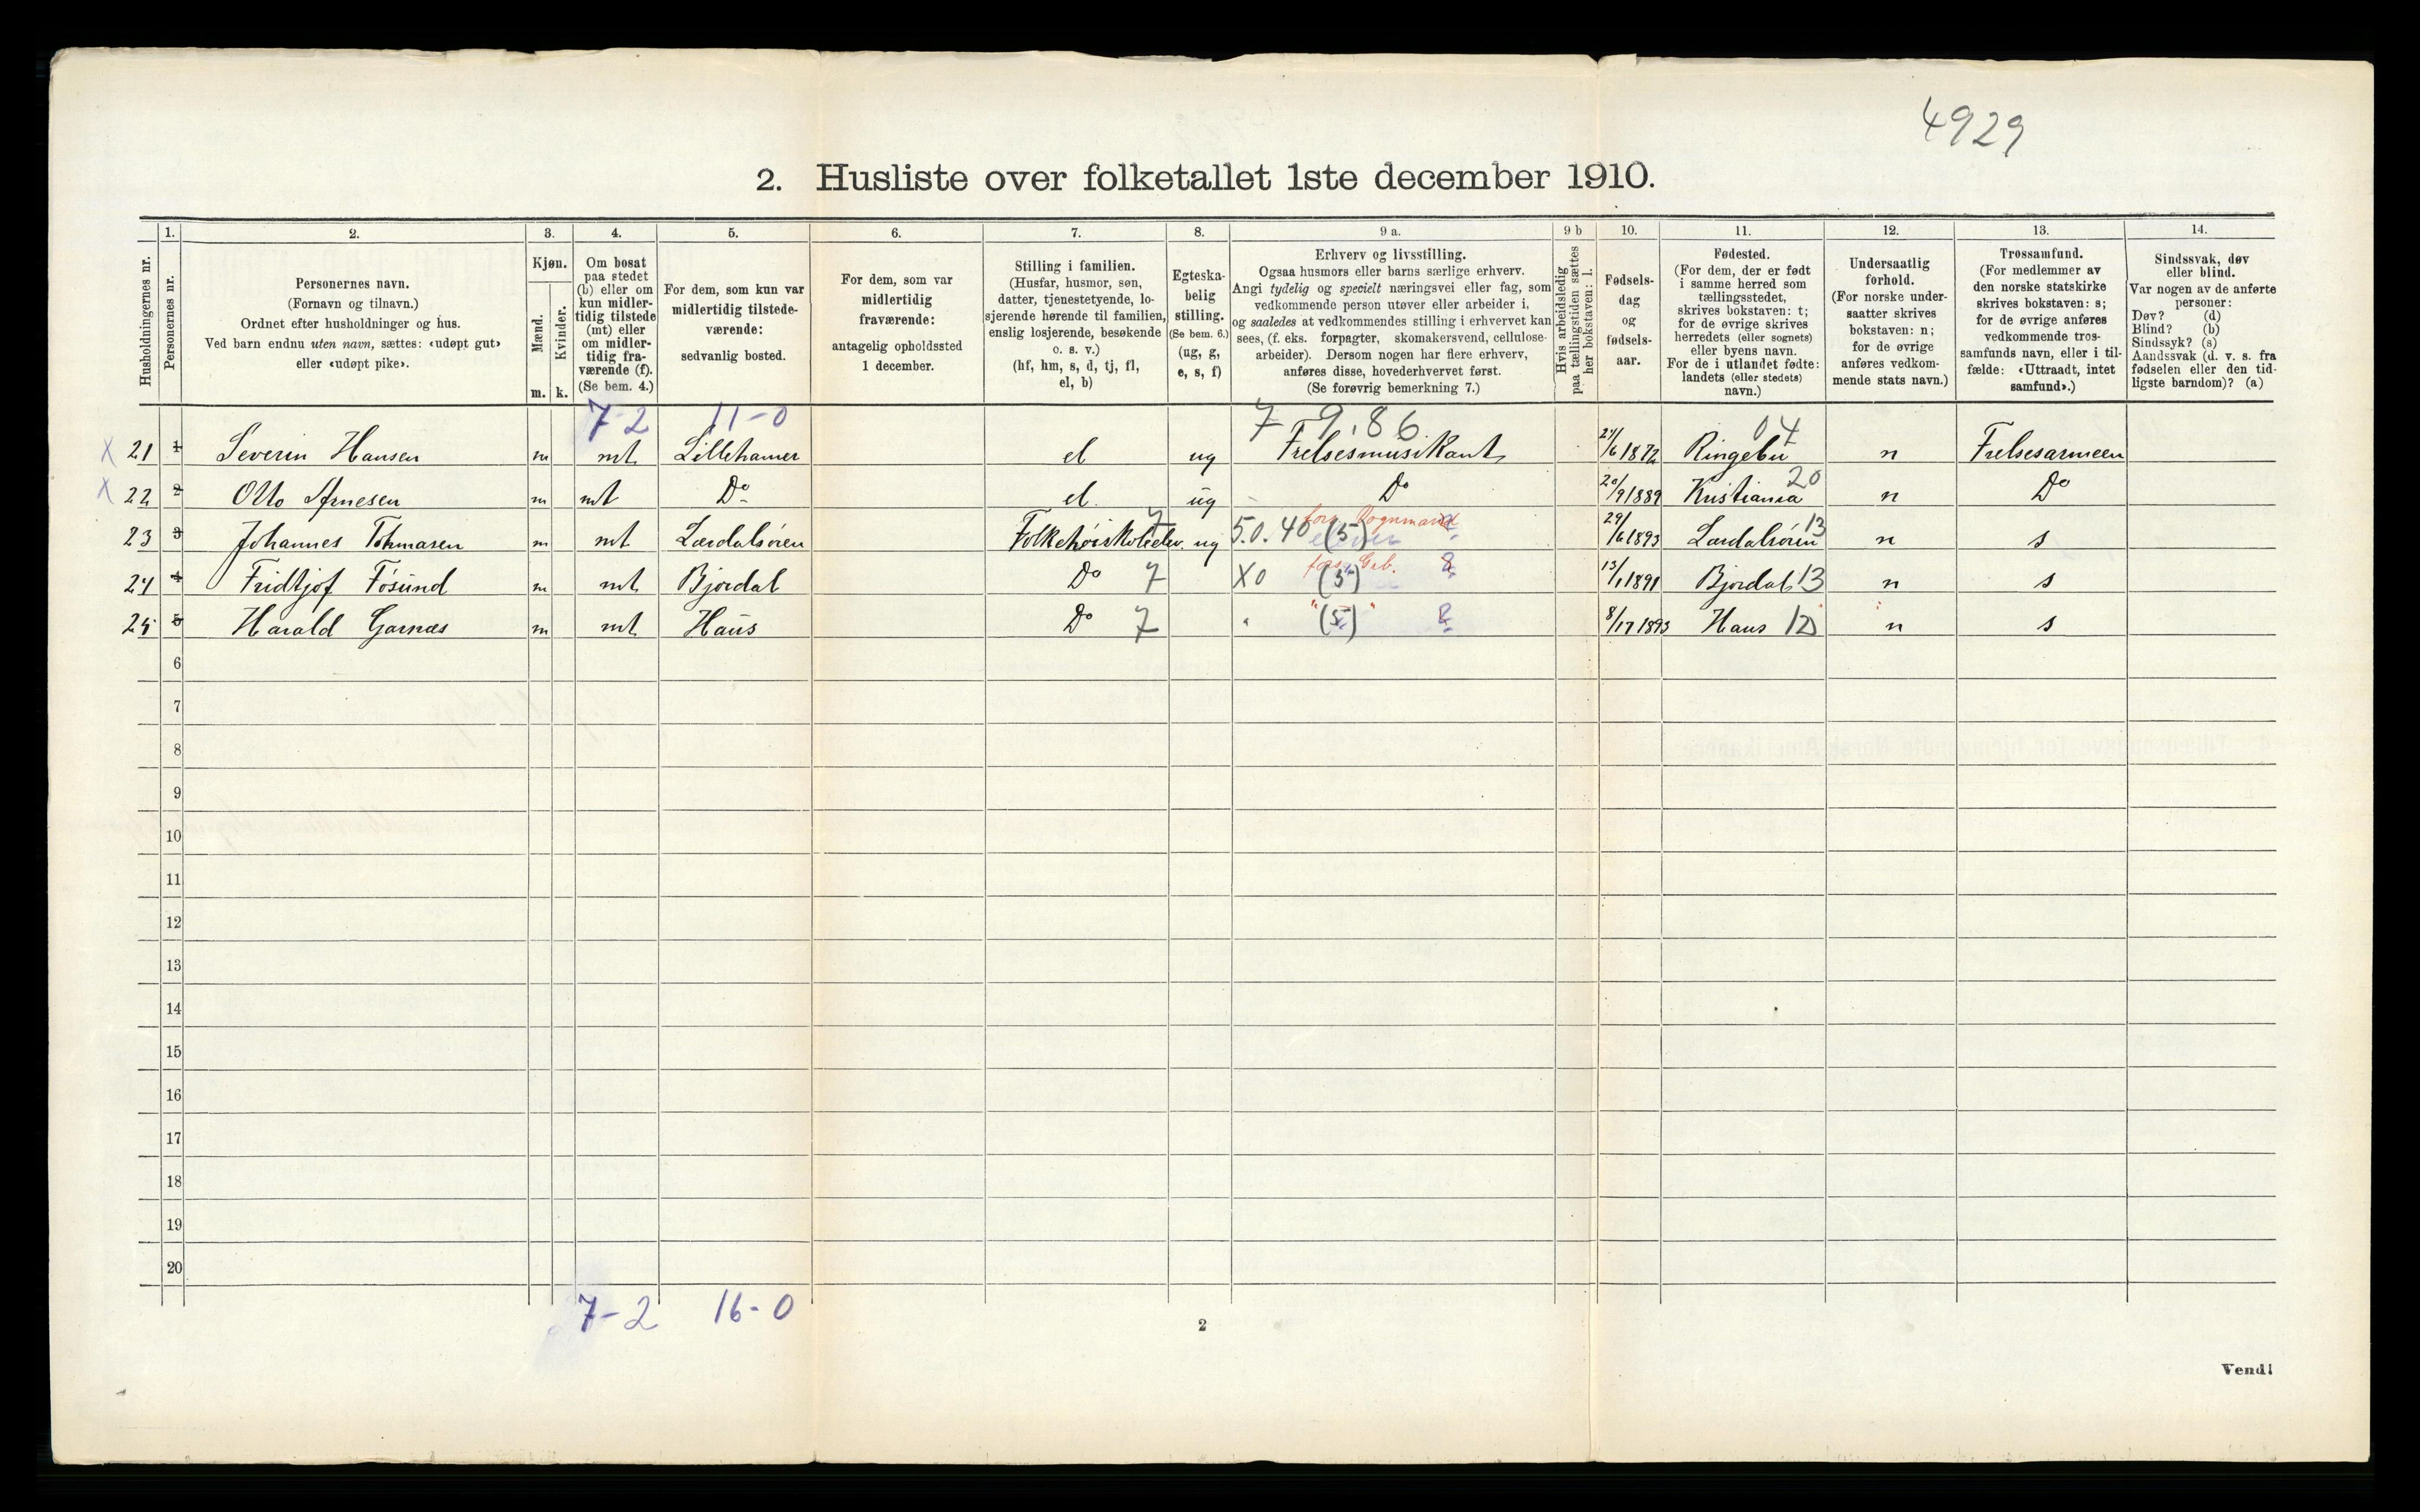 4929
2. Husliste over folketallet 1ste december 1910.
Husholdningernes nr.
1.
Personernes nr.
2.
Personernes navn.
(Fornavn og tilnavn.)
Ordnet efter husholdninger og hus.
Ved barn endnu uten navn, sættes: «udøpt gut»
eller «udøpt pike».
3.
Kjøn.
Mænd.
Kvinder.
m. k.
4.
Om bosat
paa stedet
(b) eller om
kun midler-
tidig tilstede
(mt) eller
om midler-
tidig fra-
værende (f).
(Se bem. 4.)
5.
For dem, som kun var
midlertidig tilstede-
værende:
sedvanlig bosted.
6.
For dem, som var
midlertidig
fraværende:
antagelig opholdssted
1 december.
7.
Stilling i familien.
(Husfar, husmor, søn,
datter, tjenestetyende, lo-
sjerende hørende til familien,
enslig losjerende, besøkende
o. s. v.)
(hf, hm, s, d, tj, fl,
el, b)
8.
Egteska-
belig
stilling.
(Se bem. 6.)
(ug, g,
e, s, f)
9 a.
Erhverv og livsstilling.
Ogsaa husmors eller barns særlige erhverv.
Angi tydelig og specielt næringsvei eller fag, som
vedkommende person utøver eller arbeider i,
og saaledes at vedkommendes stilling i erhvervet kan
sees, (f. eks. forpagter, skomakersvend, cellulose-
arbeider). Dersom nogen har flere erhverv,
anføres disse, hovederhvervet først.
(Se forøvrig bemerkning 7.)
9 b
Hvis arbeidsledig
paa tællingstiden sættes
her bokstaven: l.
10.
Fødsels-
dag
og
fødsels-
aar.
11.
Fødested.
(For dem, der er født
i samme herred som
tællingsstedet,
skrives bokstaven: t;
for de øvrige skrives
herredets (eller sognets)
eller byens navn.
For de i utlandet fødte:
landets (eller stedets)
navn.)
12.
Undersaatlig
forhold.
(For norske under-
saatter skrives
bokstaven: n;
for de øvrige
anføres vedkom-
mende stats navn.)
13.
Trossamfund.
(For medlemmer av
den norske statskirke
skrives bokstaven: s;
for de øvrige anføres
vedkommende tros-
samfunds navn, eller i til-
fælde: «Uttraadt, intet
samfund».)
14.
Sindssvak, døv
eller blind.
Var nogen av de anførte
personer:
Døv? (d)
Blind? (b)
Sindssyk? (s)
Aandssvak (d. v. s. fra
fødselen eller den tid-
ligste barndom)? (a)
7-2 11-0 7-9.86 04
X 21 1 Severin Hansen m mt Lillehamer el ug Frelsesmusikant /6 1872 Ringebu n Frelsesarmeen
X 22 2 Otto Arnesen m mt Do el. ug Do 20/9 1889 Kristiania 20 n Do
23 3 Johannes Tohmasen m mt Lærdalsøren Folkehøiskoleelev. 7 ug 5.0.40 (5) 29/6 1893 Lærdalsøren 13 n s
24 4 Fridtjof Fosund m mt Bjordal Do 7 X0 (5) 13/1 1891 Bjordal 13 n s
25 5 Harald Garnæs m mt Haus Do 7 " (5) " 8/12 1893 Haus 12 n s
6
7
8
9
10
11
12
13
14
15
16
17
18
19
20
7-2 16-0
2
Vend!